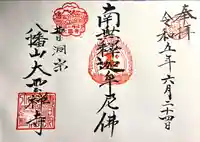 奉拝
令和五年六月二十四日
南無釈迦牟尼佛
曹洞宗
八幡山大聖禅寺